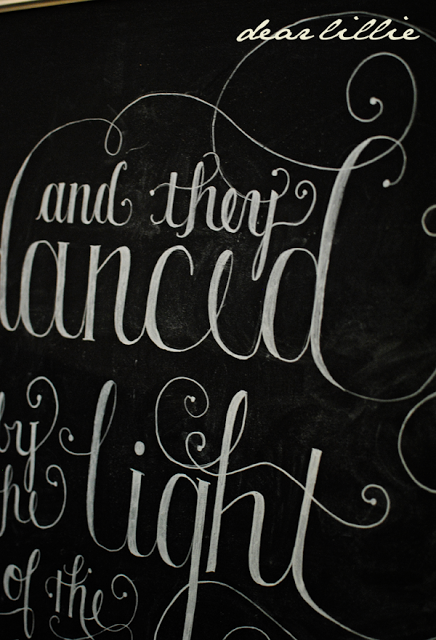 dear lillie
and they
danced
by
the
light
of the